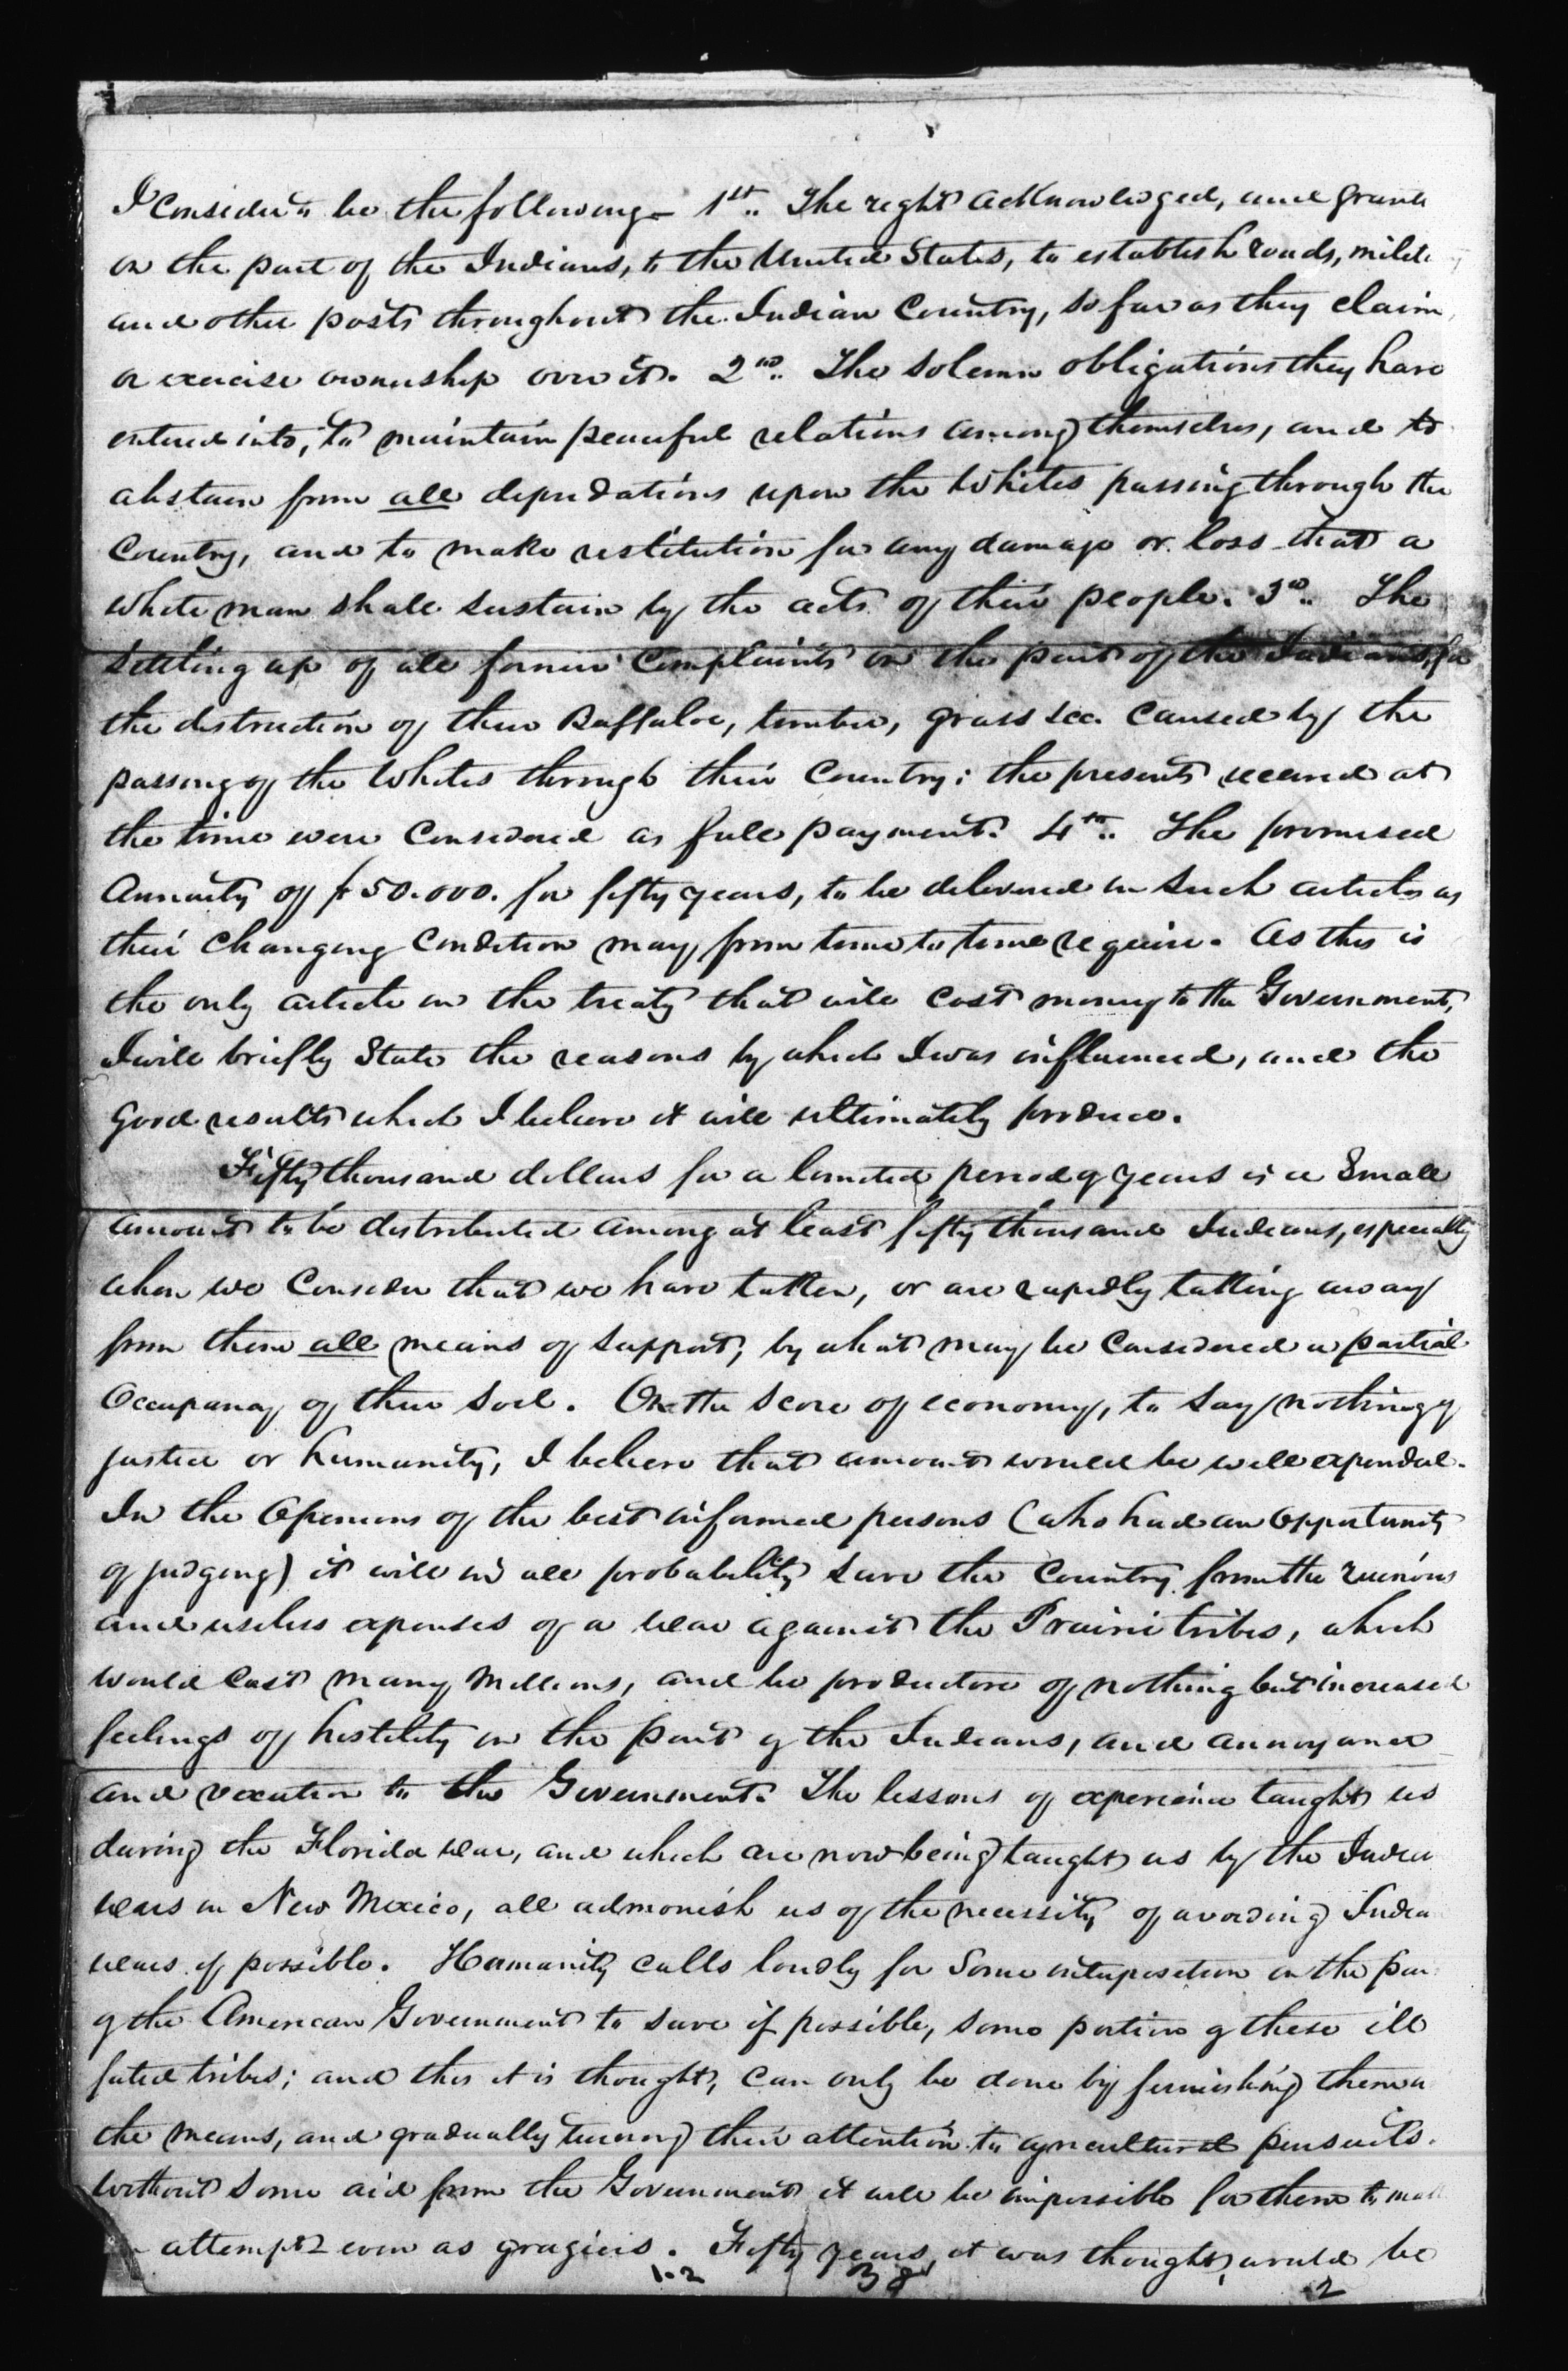 I consider to be the following- 1st.. The right acknowledged, and grante
on the part of the Indians, to the United States, to establish roads, milit
and other posts throughout the Indian Country, so far as they claim,
or exercise ownership over it. 2nd.. The solemn obligations they have
entered into, to maintain peaceful relations among themselves, and to
abstain from all depredations upon the Whites passing through the
Country, and to make restitution for any damage or loss that a
white man shall sustain by the acts of their people. 3rd.. The
settling up of all former complaints on the part of the Indians, for
the distruction of their Buffaloe, timber, grass &c. caused by the
passing of the Whites through their Country; the presents received at
the time were considered as full payment. 4th.. The promised
Annuity of $50.000. for fifty years, to be delivered in such articles as
their changing condition may from time to time require. As this is
the only article in the treaty that will cost money to the Government,
I will briefly State the reasons by which I was influenced, and the
good results which I believe it will ultimately produce.
Fifty thousand dollars for a limited period of years is a Small
amount to be distributed among at least fifty thousand Indians, especially
when we consider that we have taken, or are rapidly taking away
from them all means of support, by what may be considered a partial
Occupancy of their soil. On the score of economy, to say nothing of
justice or humanity, I believe that amount would be well expended.
In the Opinions of the best informed persons (who had an opportunity
of judging) it will in all probability save the Country from the ruinous
and useless expenses of a war against the Prairie tribes, which
would cost many Millions, and be productive of nothing but increased
feelings of hostility on the part of the Indians, and annoyance
and vexation to the Government. The lessons of experience taught us
during the Florida war, and which are now being taught us by the Indian
wars in New Mexico, all admonish us of the necessity of avoiding Indian
wars if possible. Humanity calls loudly for some interposition on the par
of the American Government to save if possible, some portion of these ill
fated tribes; and this it is thought, can only be done by furnishing them
the means, and gradually turning their attention to agricultural pursuits.
Without some aid from the Government it will be impossible for them to make
attempt even as graziers. Fifty years, it was thought, would be
1.2 38 2